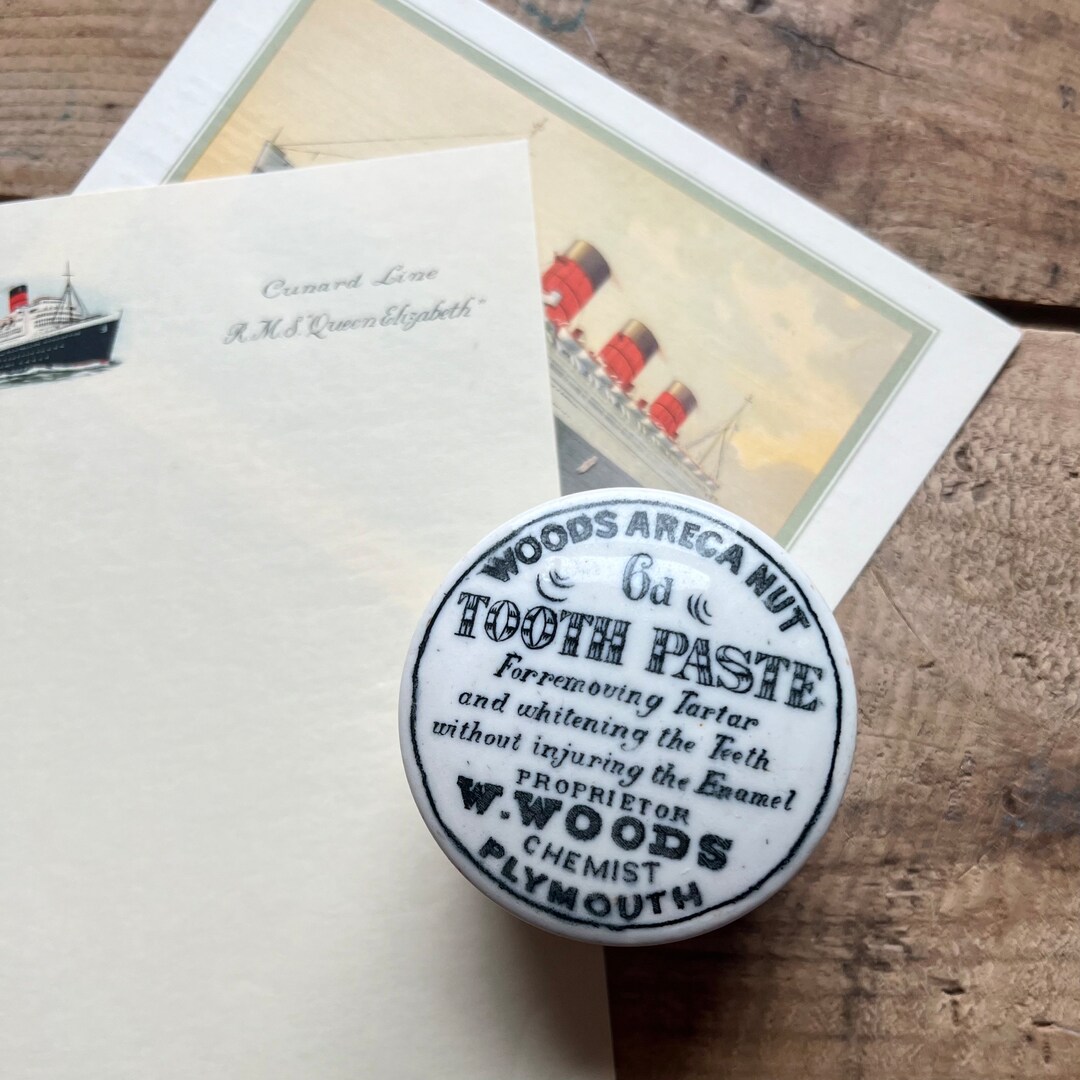 Cunard Line
R.M.S "Queen Elizabeth"
WOODS ARECA NUT
6d
TOOTH PASTE
For removing Tartar
and whitening the Teeth
without injuring the Enamel
PROPRIETOR
W. WOODS
CHEMIST
PLYMOUTH